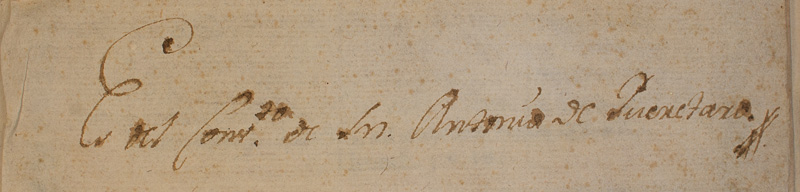 Es del Conv.to de Sn. Antonio de Queretaro.